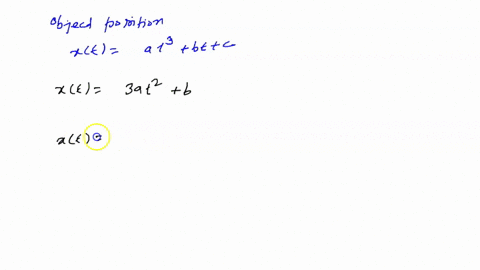 object porition
x(t) = at³ + bt + c
x(t) = 3at² + b
x(t) =